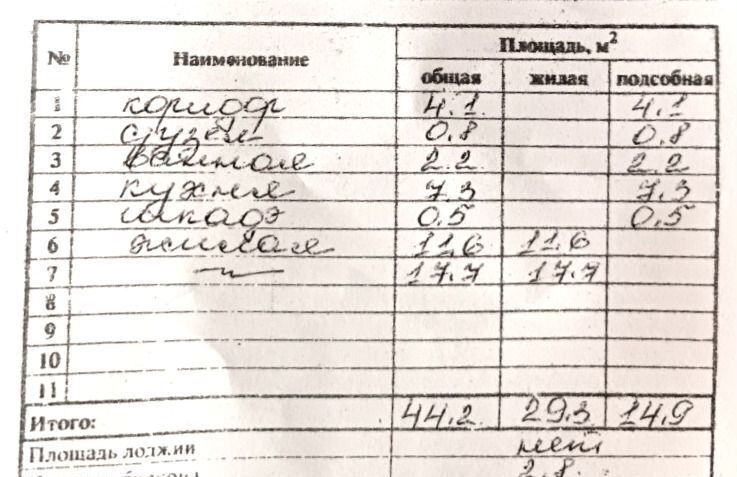 № Наименование Площадь, м²
общая жилая подсобная
1 коридор 4.1 4.1
2 с/узел 0.8 0.8
3 ванная 2.2 2.2
4 кухня 7.3 7.3
5 шкаф 0.5 0.5
6 жилая 11.6 11.6
7 —"— 17.7 17.7
8
9
10
11
Итого: 44.2 29.3 14.9
Площадь лоджии нет
2.8